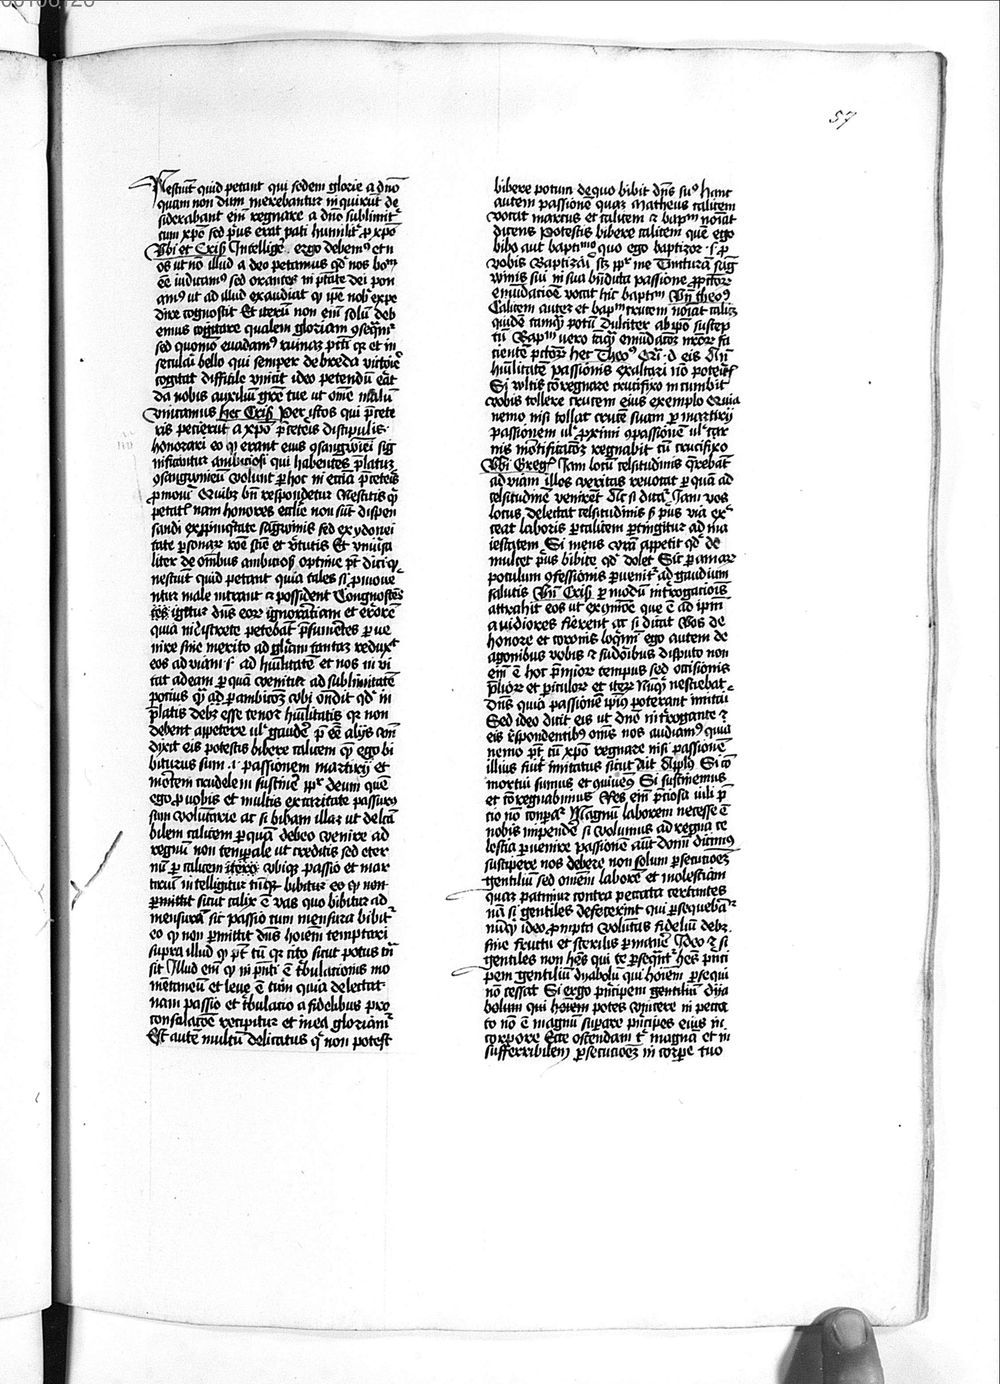 57
Nestiut quid petant qui sedem glorie a dno
quam non dum merebantur inquirut de
siderabant eim regnare a dno sublimit
cum xpo sed prius erat pati humilit p xpo
Vbi et Cris Intellige ergo debem9 et n
os ut no illud a deo petamus qd nos bo
ee iudicam9 sed orantes in ptate dei pon
am9 ut ad illud exaudiat qz ipe nob expe
dire cognoscit Et iteru non eim solu deb
emus cogitare qualem gloriam 9seqm
sed quomo euadam9 ruinaz pcti qz et in
seculari bello qui semper de preda victorie
cogitat difficile vincit ideo petendu erat
da nobis auxiliu gre tue ut ome malu
vincamus hec Cris Per istos qui prete
ris petierut a xpo pceteris discipulis
honorari eo qz erant eius 9sangwinei sig
nificantur ambiciosi qui habentes platuz
9sangwineu volunt p hoc in ecclia pceteris
pmoui Quibz bn respondetur Nescitis qd
petat nam honores ecclie non sut dispen
sandi ex ppinqtate sagwinis sed ex ydonei
tate psonar roe scie et vtutis Et vniusa
liter de omibus ambiciosis optime pt dici qz
nestiut quid petant quia tales si pmoue
ntur male intrant et possident Congnoscens
igitur dns eor ignorantiam et errore
quia indiscrete petebat psumetes p ue
nire sine merito ad gliam tantaz redux
eos ad viam .s. ad huilitate et nos in vi
tat ad eam p qua venitur ad sublimitate
potius q ad p ambicoz vbi ondit qd in
platis debz esse tenor huilitatis qz non
debent appetere ul gaude p ee alijs Cum
dixit eis potestis bibere calicem qz ego bi
biturus sum .i. passionem martirij et
mortem crudelem sustine ppr deum que
ego p uobis et multis ex caritate passur9
sum voluntarie ac si bibam illaz ut delca
bilem calicem p qua debeo venire ad
regnu non temporale ut creditis sed eter
nu p calicem vbiqz passio et mar
tiriu intelligitur bibitur eo qz non
pmittit sicut calix e vas quo bibitur ad
mensura sic passio cum mensura bibit
eo qz non pmittit dns hoiem temptari
supra illud qz pt tu qz cito sicut potus tn
sit Illud eim qz in pnti e tbulacionis mo
mentaneu et leue e tum quia delectat
nam passio et tbulacio a fidelibus pro
consolacoe recipitur et in ea gloriant
Est aute multu delicatus qz non potest
bibere potum de quo bibit dns su9 Hanc
autem passione quaz Matheus calicem
vocat marcus et calicem et bapm noiat
dicens Potestis bibere calicem que ego
bibo aut baptimo quo ego baptizor .s. p
vobis Baptizari sz ppr me Tinctura sag
winis sui in sua bndicta passione pptor
emudacoe vocat hic baptm Vn Theo9
Calicem autez et bapm crucem noiat calice
quide tamqz potu dulciter ab ipo suscep
tu Bapm vero taqz emudacoz nror fa
ciente pctor hec Theo9 Cri .d. eis Qui
huilitate passionis exaltari no poterit
Si vltis coregnare crucifixo in cumbit
vobis tollere crucem eius exemplo Quia
nemo nisi tollat cruce suam p martirij
passionem ul proximi 9passione ul car
nis mortificacoz regnabit cu crucifixo
Vbi Greg Iam locu celsitudinis qrebat
ad viam illos veritas reuocat p qua ad
celsitudine veniret Ac si dicat Iam vos
locus delectat celsitudinis s pus via ex
ceat laboris p calicem ptingitur ad ma
iestatem Si mens vra appetit qd de
mulcet pus bibite qd dolet Sic p amar
poculum 9fessionis puenit ad gaudium
salutis Vn Cris p modu introgacionis
attrahit eos ut ex que e ad ipm
auidiores fierent ac si dicat Vos de
honore et coronis loqm ego autem de
agonibus vobis et sudoribus disputo non
eim e hoc pmior tempus sed occisionis
plior et piculor et iter Nuqz nesciebat
dns quia passione ipi9 poterant imitari
Sed ideo dicit eis ut dno introgante et
eis respondentib9 oms nos audiam9 quia
nemo pt cu xpo regnare nisi passione
illius fuit imitatus sicut ait Aplus Si co
mortui sumus et quiuem9 Si sustinemus
et coregnabimus Res eim pciosa uili p
cio no conpar Magnu laborem necesse e
nobis impende si volumus ad regna ce
lestia puenire passione aut domi dicimus
suscipere nos debere non solum psecucioez
gentiliu sed omem labore et molestiam
quaz patimur contra peccata certantes
na si gentiles defecerint qui psequebat
nuqz ideo prompta volutas fideliu debz
sine fructu et sterilis p mane Ideo et si
gentiles non hes qui te pseqnt hes princi
pem gentiliu dyabolu qui hoiem p sequi
no cessat Si ergo principem gentiliu dya
bolum qui hoiem potes vincere in pecca
to no e magnu supare principes eius in
corpore Ecce ostendam t magna et in
sufferribilem psecucioez in corpe tuo